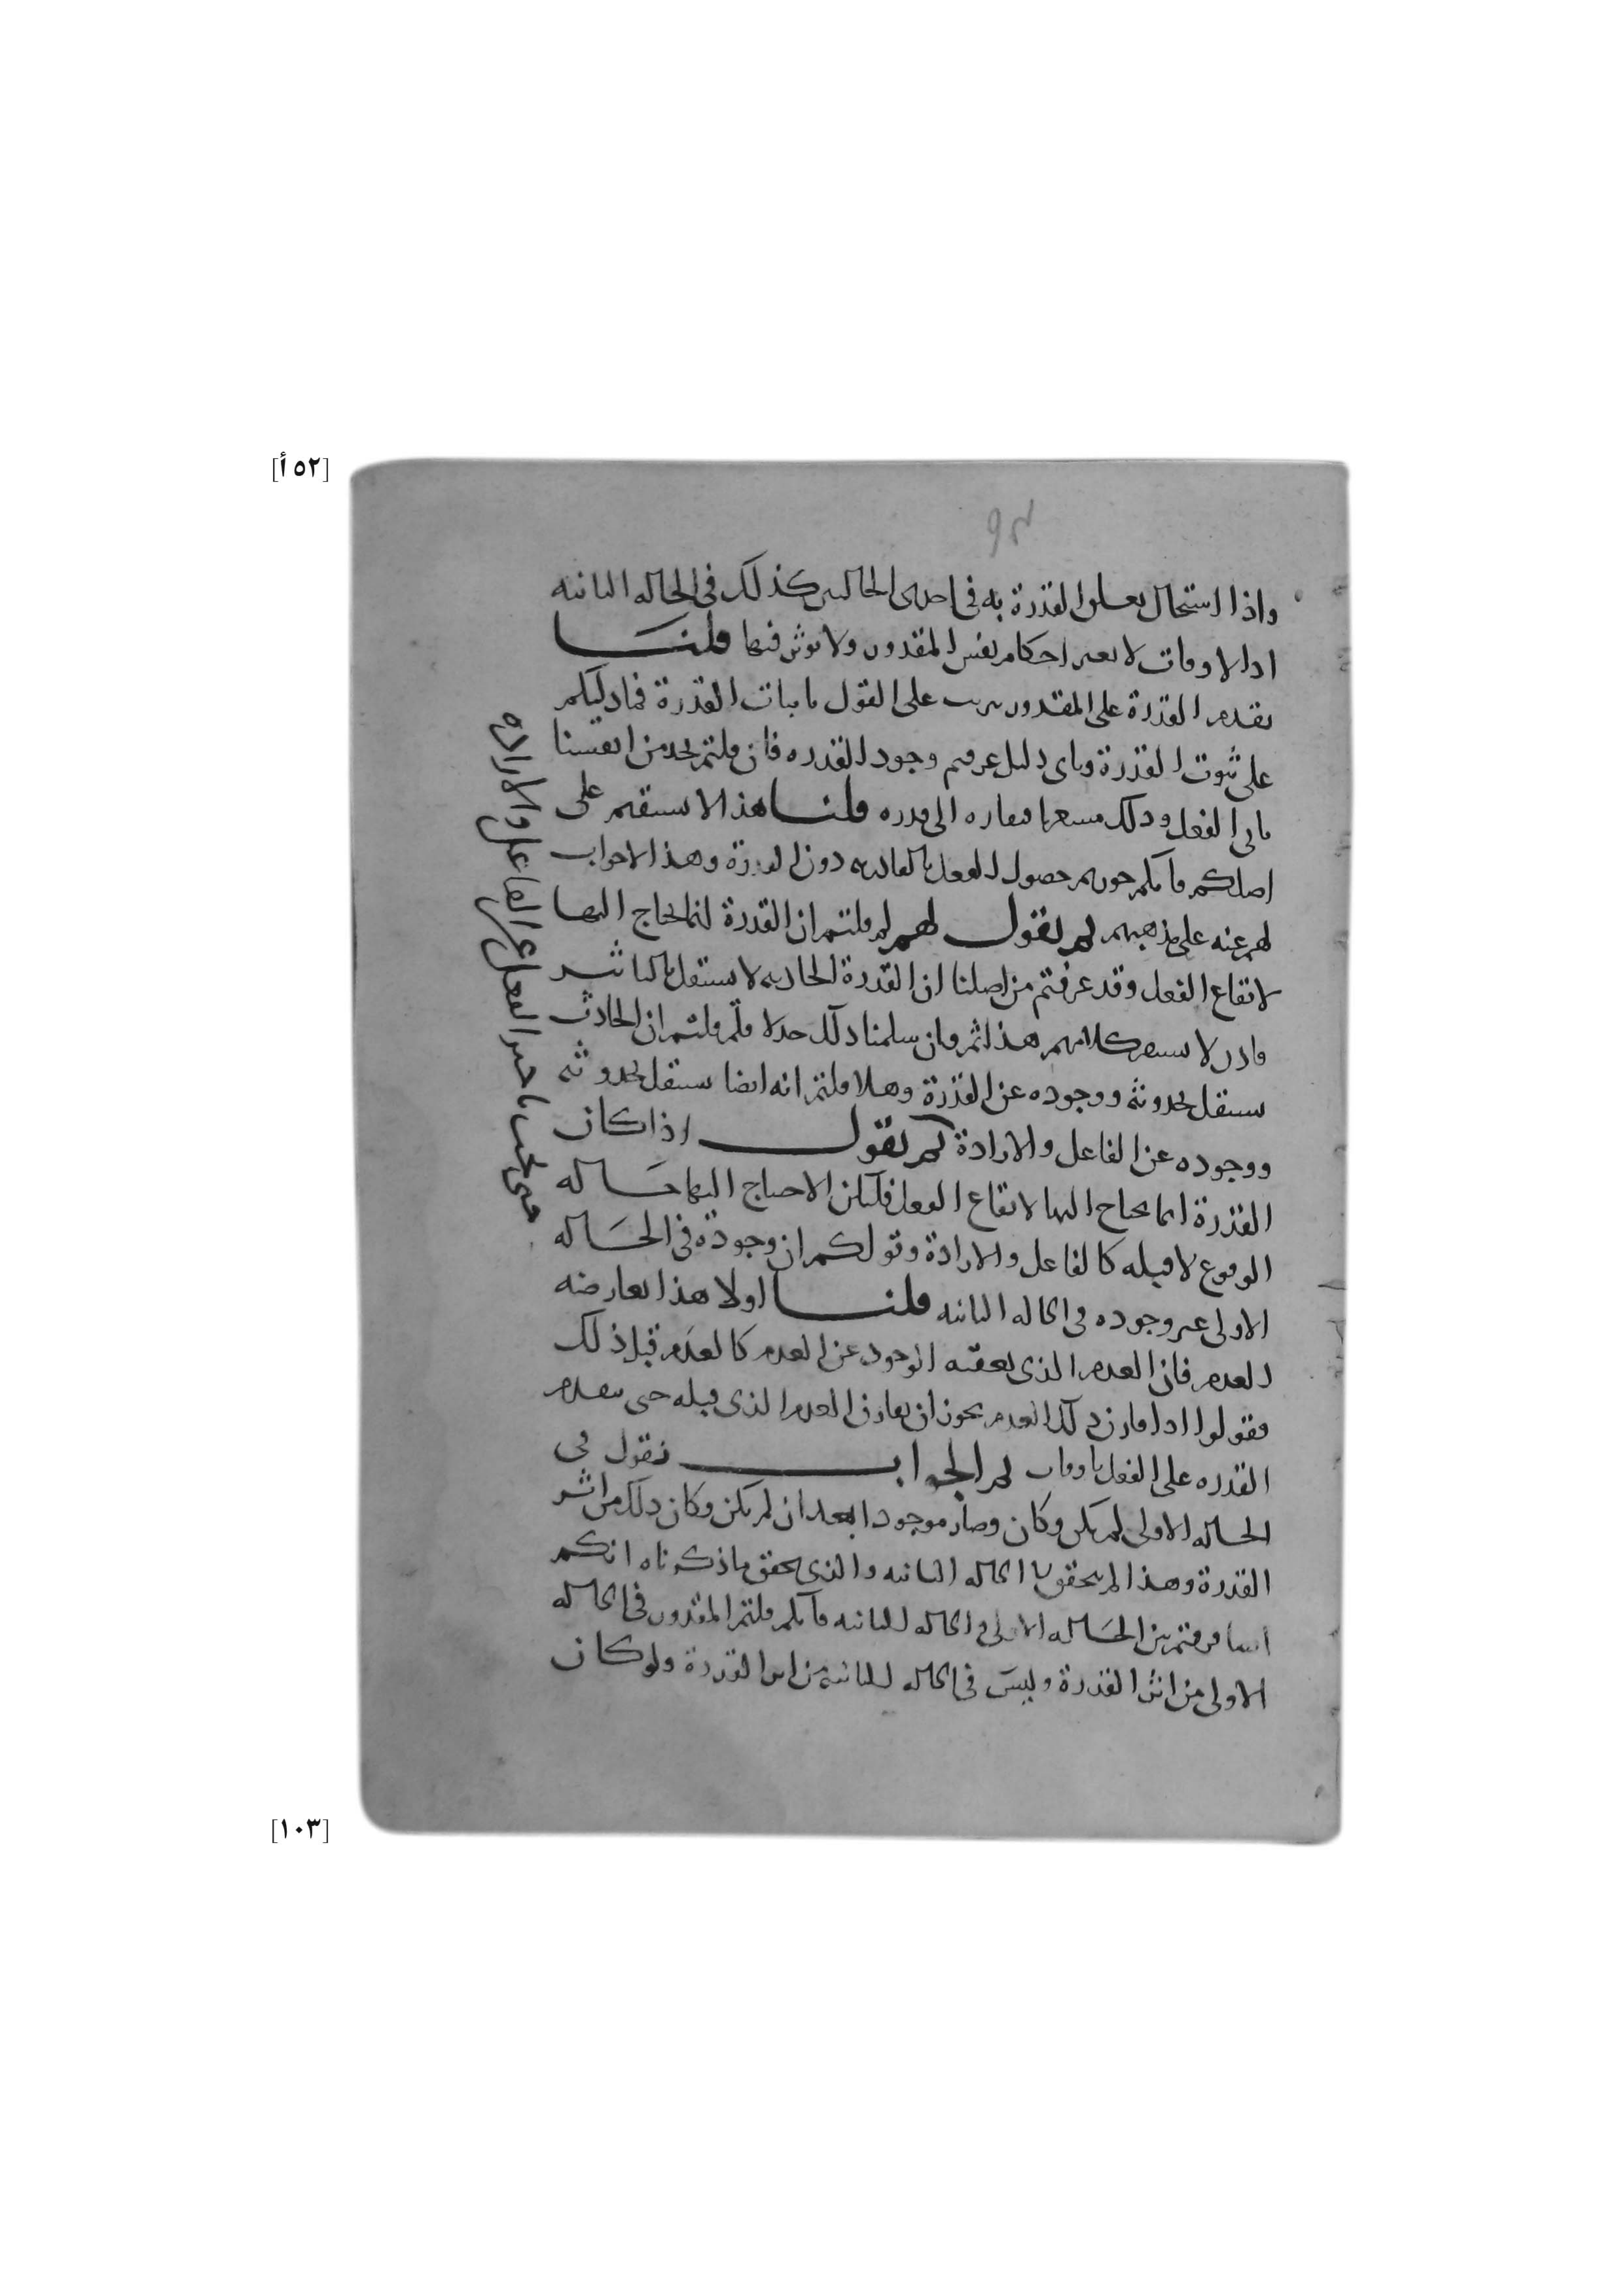 [٥٢ أ]
٩٣
واذا استحال تعلق القدرة به في احدى الحالتين كذلك في الحالة الثانية
اذ الاوقات لا تغير احكام نفس المقدور ولا توثر فيها قلنا
تقدم القدرة على المقدور يترتب على القول باثبات القدرة فما دليلكم
على ثبوت القدرة وباي دليل عرفتم وجود القدره فان قلتم نجد من انفسنا
تاتي الفعل وذلك مشعر بافتقاره الى قدره قلنا هذا لا يستقيم على
اصلكم فانكم جوزتم حصول الفعل بالقادرية دون القدرة وهذا لا جواب
لهم عنه على مذهبهم ثم نقول لهم لم قلتم ان القدرة انما يحتاج اليها
لايقاع الفعل وقد عرفتم من اصلنا ان القدرة الحادثة لا تستقل بالتاثير
فاذن لا يستمر كلامهم هذا ثم وان سلمنا ذلك جدلا فلم قلتم ان الحادث
يستقل بحدوثه ووجوده عن القدرة وهلا قلتم انه ايضا يستقل بحدوثه
ووجوده عن الفاعل والارادة ثم نقول اذا كان
القدرة انما يحتاج اليها لايقاع الفعل فليكن الاحتياج اليها حالة
الوقوع لا قبله كالفاعل والارادة وقولكم ان وجوده في الحالة
الاولى عين وجوده في الحالة الثانية قلنا اولا هذا يعارضه
العدم فان العدم الذي يعقبه الوجود عن العدم كالعدم قبل ذلك
فقولوا اذا قارن ذلك العدم يجوز ان يقارن العدم الذي قبله حتى تتقدم
القدره على الفعل باوقات ثم الجواب نقول في
الحالة الاولى لم يكن وكان وصار موجودا بعد ان لم يكن وكان ذلك من اثر
القدرة وهذا لم يتحقق في الحالة الثانية والذي يحقق ما ذكرناه انكم
ايضا فرقتم بين الحالة الاولى والحالة الثانية فانكم قلتم المقدور في الحالة
الاولى من اثر القدرة وليس في الحالة الثانية من اثر القدرة ولو كان
الفعل عن الفاعل والارادة
[١٠٣]